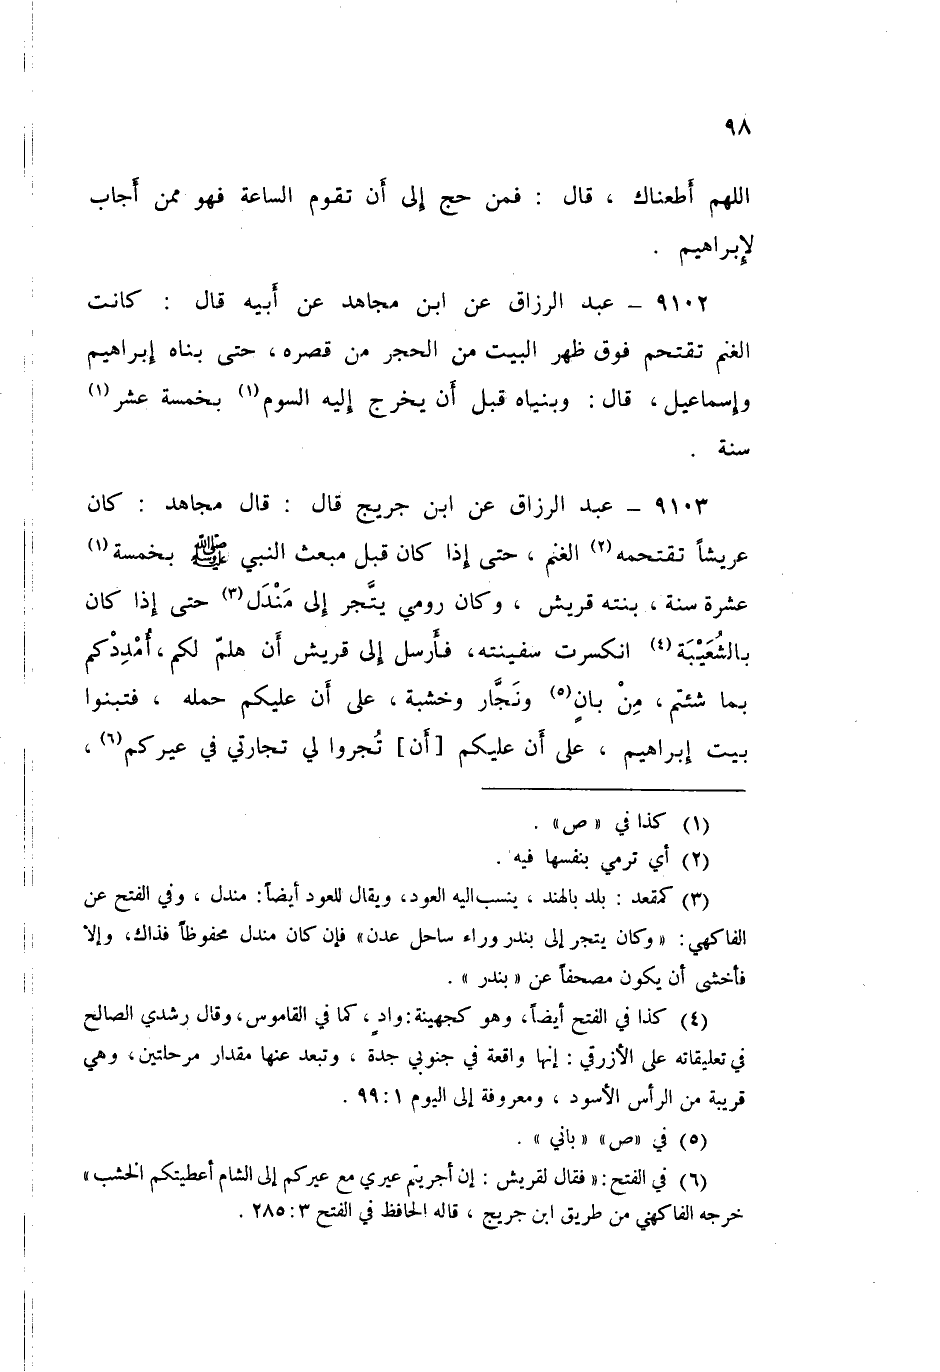 ٩٨
اللهم أَطعناك ، قال : فمن حج إلى أَن تقوم الساعة فهو ممن أَجاب
لإِبراهيم .
٩١٠٢ – عبد الرزاق عن ابن مجاهد عن أَبيه قال : كانت
الغنم تقتحم فوق ظهر البيت من الحجر من قصره ، حتى بناه إبراهيم
وإسماعيل ، قال : وبنياه قبل أَن يخرج إليه السوم(١) بخمسة عشر(١)
سنة .
٩١٠٣ – عبد الرزاق عن ابن جريج قال : قال مجاهد : كان
عريشاً تقتحمه(٢) الغنم ، حتى إذا كان قبل مبعث النبي ﷺ بخمسة(١)
عشرة سنة ، بنته قريش ، وكان رومي يتَّجر إلى مَنْدَل(٣) حتى إذا كان
بالشُعَيْبَة(٤) انكسرت سفينته، فأَرسل إلى قريش أَن هلمّ لكم ، أُمْدِدْكم
بما شئتم ، مِنْ بانٍ(٥) ونَجَّار وخشبة ، على أَن عليكم حمله ، فتبنوا
بيت إبراهيم ، على أَن عليكم [أن] تُجروا لي تجارتي في عيركم(٦) ،
(١) كذا في « ص» .
(٢) أي ترمي بنفسها فيه .
(٣) كمقعد : بلد بالهند ، ينسب اليه العود، ويقال للعود أيضاً : مندل ، وفي الفتح عن
الفاكهي : « وكان يتجر إلى بندر وراء ساحل عدن» فإن كان مندل محفوظاً فذاك، وإلا
فأخشى أن يكون مصحفاً عن « بندر » .
(٤) كذا في الفتح أيضاً، وهو كجهينة : وادٍ ، كما في القاموس ، وقال رشدي الصالح
في تعليقاته على الأزرقي : إنها واقعة في جنوبي جدة ، وتبعد عنها مقدار مرحلتين، وهي
قريبة من الرأس الأسود ، ومعروفة إلى اليوم ١ : ٩٩ .
(٥) في «ص» « باني » .
(٦) في الفتح : « فقال لقريش : إن أجريتم عيري مع عيركم إلى الشام أعطيتكم الخشب »
خرجه الفاكهني من طريق ابن جريج ، قاله الحافظ في الفتح ٣ : ٢٨٥ .